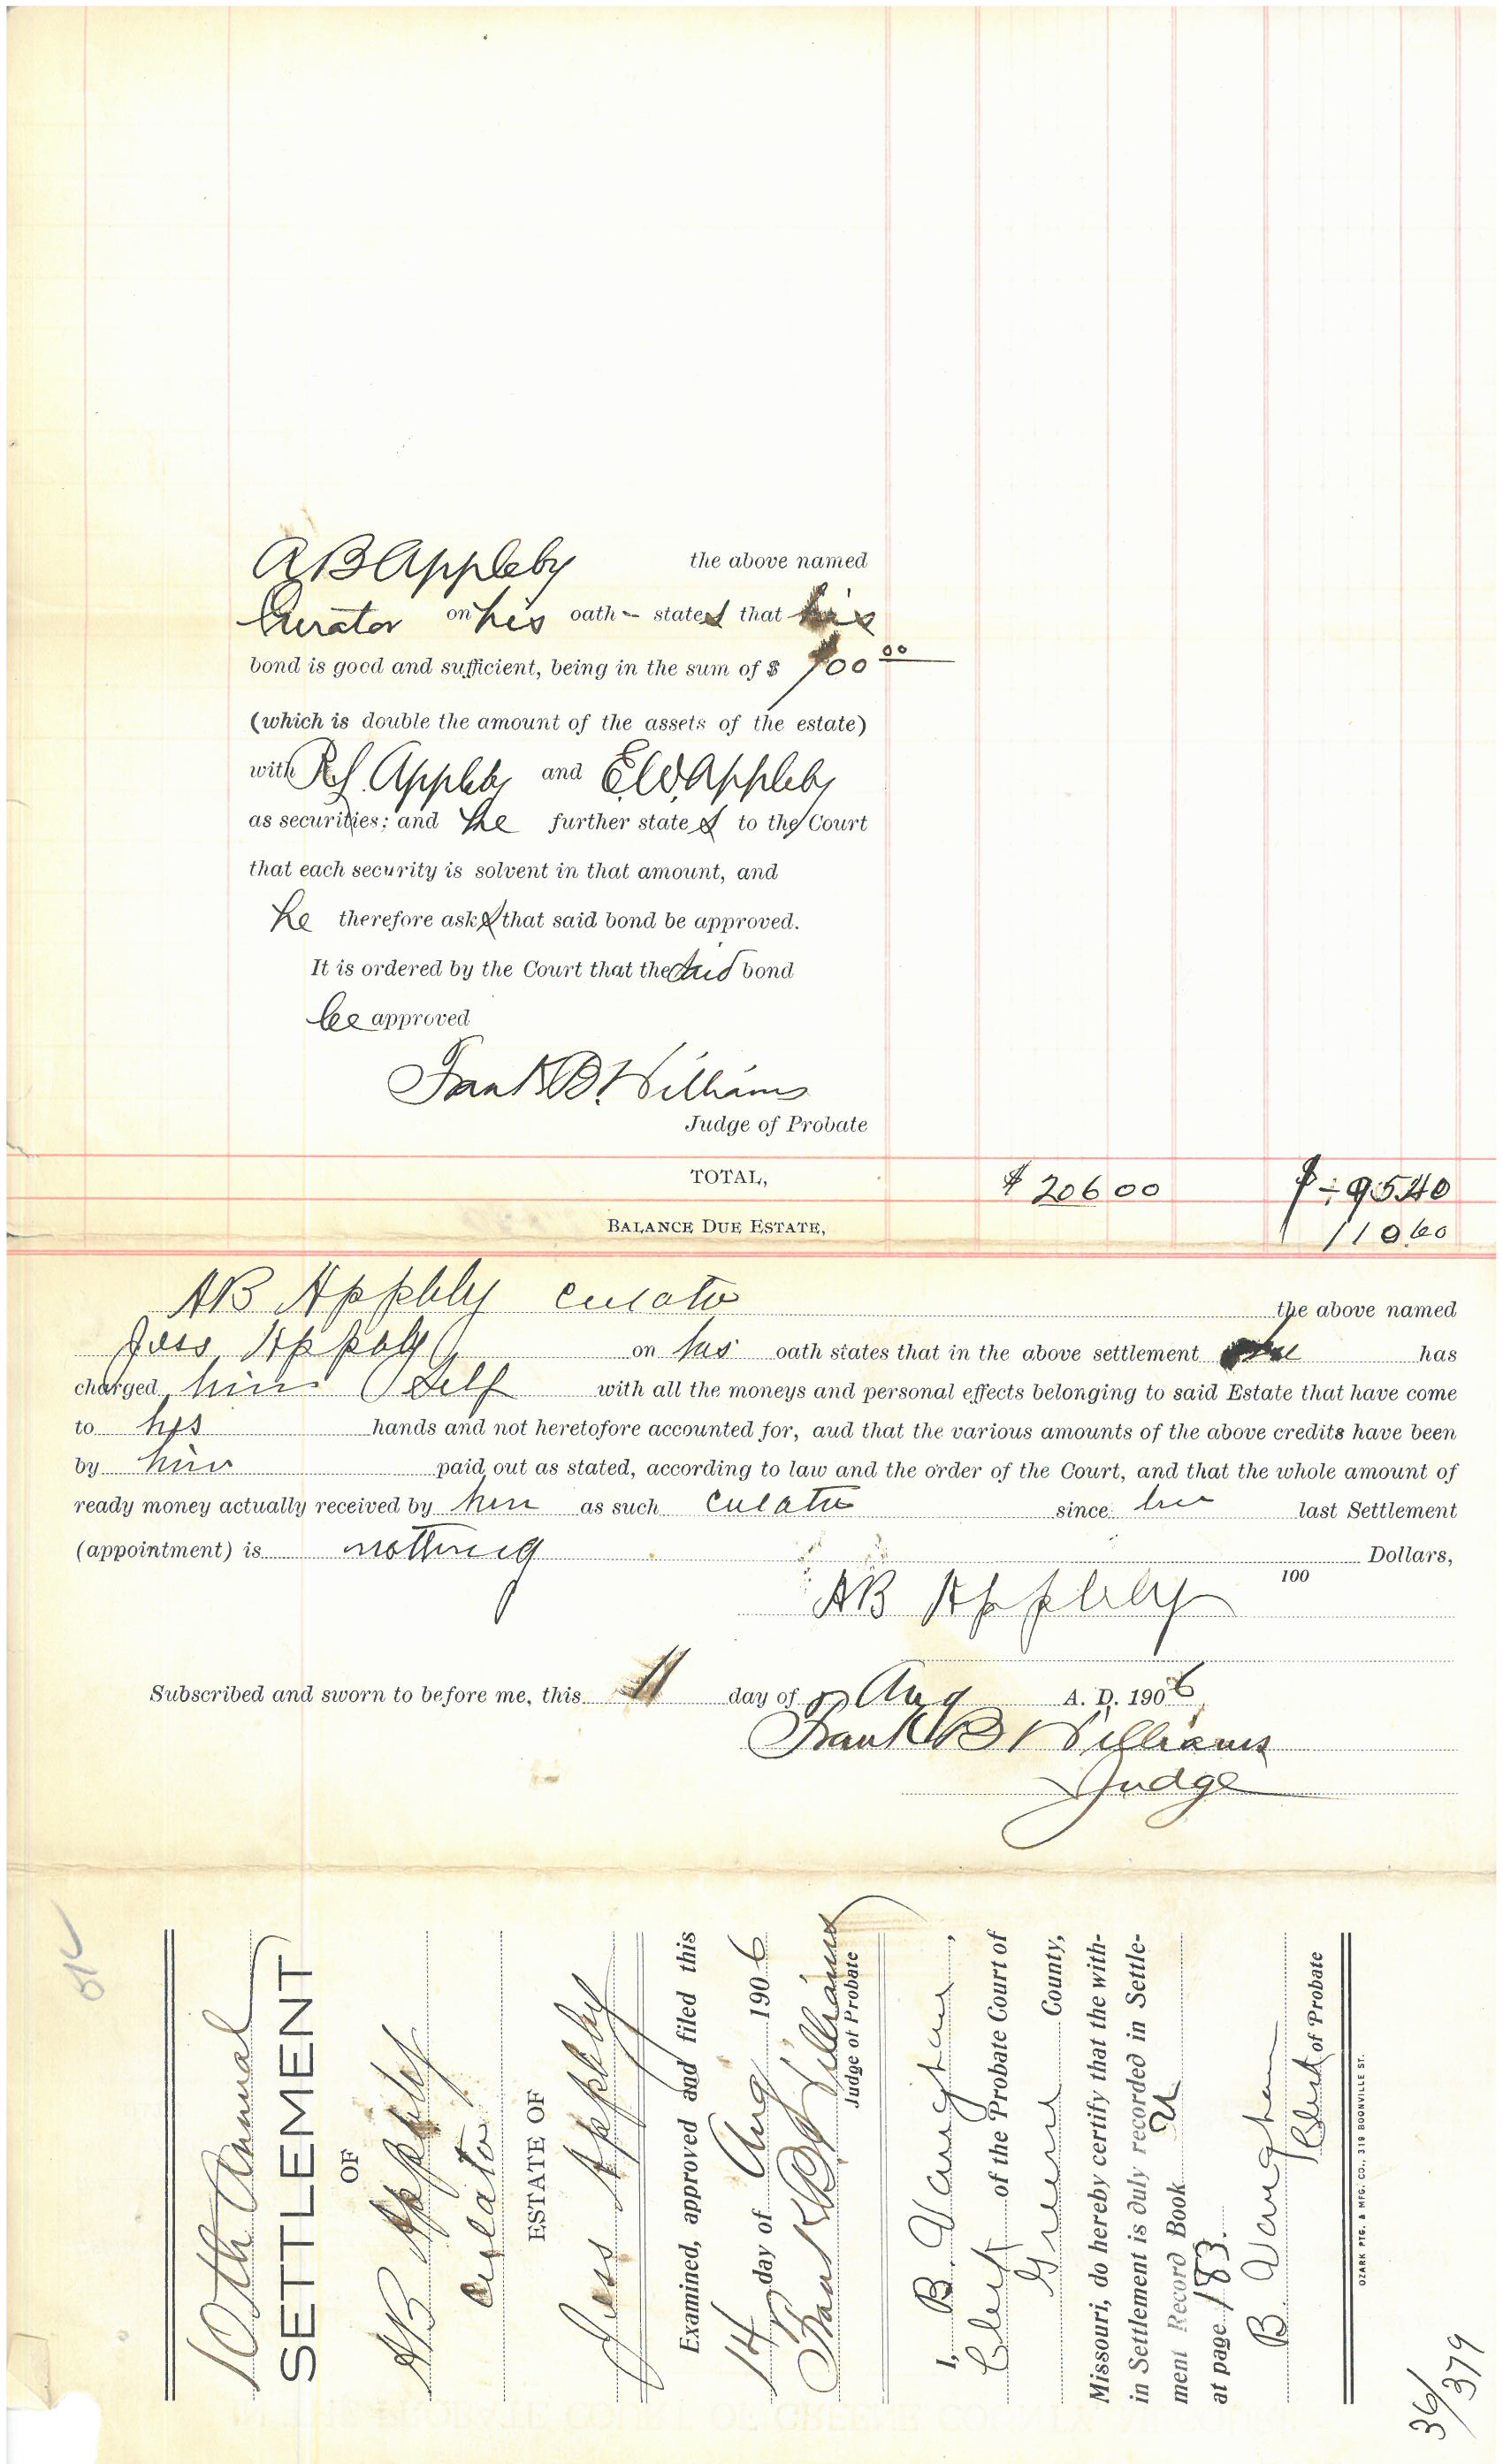 A B Appleby the above named
Curator on his oath - states that his
bond is good and sufficient, being in the sum of $ 700 00
(which is double the amount of the assets of the estate)
with Appleby and E.W. Appleby
as securities; and he further states to the Court
that each security is solvent in that amount, and
he therefore asks that said bond be approved.
It is ordered by the Court that the said bond
be approved
Frank B. Williams
Judge of Probate
TOTAL, $ 206 00 $ 95.40
BALANCE DUE ESTATE, 110.60
AB Appleby curator the above named
Jess Appleby on his oath states that in the above settlement he has
charged him self with all the moneys and personal effects belonging to said Estate that have come
to his hands and not heretofore accounted for, aud that the various amounts of the above credits have been
by him paid out as stated, according to law and the order of the Court, and that the whole amount of
ready money actually received by him as such curator since his last Settlement
(appointment) is nothing Dollars,
100
AB Appleby
Subscribed and sworn to before me, this 11 day of Aug A. D. 1906
Frank B Williams
Judge
OK
10th Annual
SETTLEMENT
OF
AB Appleby
curator
ESTATE OF
Jess Appleby
Examined, approved and filed this
14 day of Aug 1906
Frank B Williams
Judge of Probate
I, B. Vaughan,
Clerk of the Probate Court of
Greene County,
Missouri, do hereby certify that the with-
in Settlement is duly recorded in Settle-
ment Record Book U
at page 183.
B. Vaughan
Clerk of Probate
OZARK PTG. & MFG. CO., 319 BOONVILLE ST.
36/379